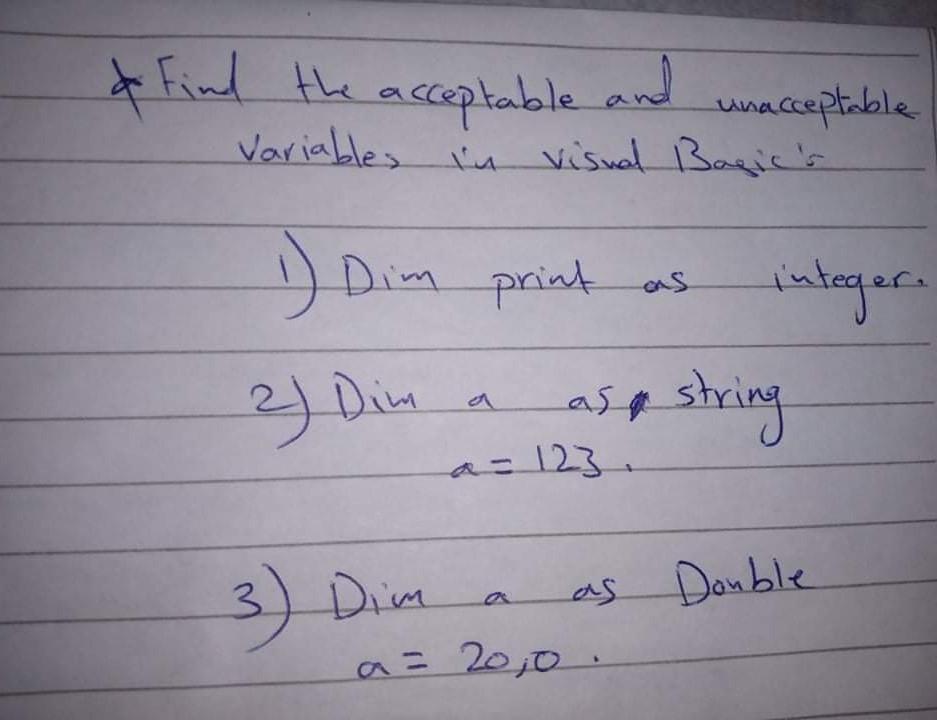 * Find the acceptable and unacceptable
Variables in visual Basic's
1) Dim print as integer.
2) Dim a as string
a = 123.
3) Dim a as Double
a = 20,0.